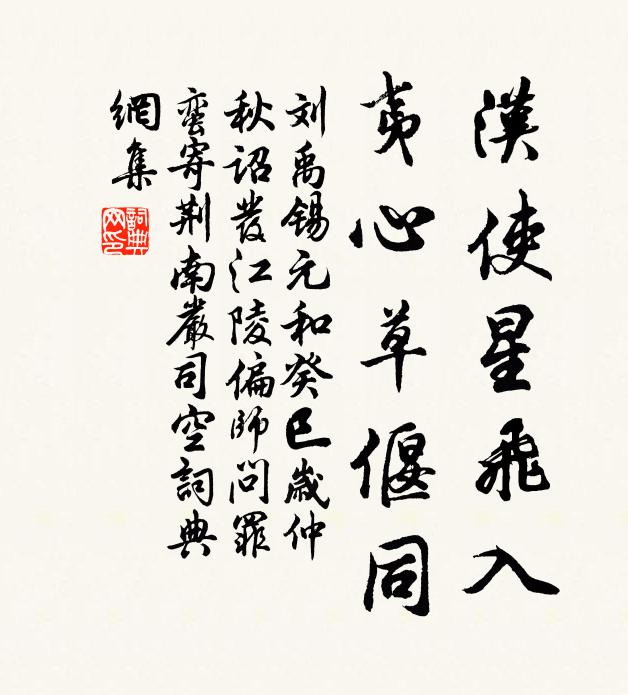 漢使星飛入
夷心草偃同
刘禹錫元和癸巳歲仲
秋詔發江陵偏師問罪
蛮寄荆南嚴司空詞典
網集
詞典
网印